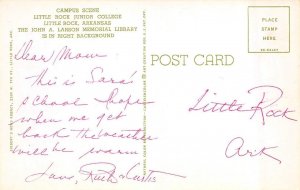 CAMPUS SCENE
LITTLE ROCK JUNIOR COLLEGE
LITTLE ROCK, ARKANSAS
THE JOHN A. LARSON MEMORIAL LIBRARY
IS IN RIGHT BACKGROUND
PLACE
STAMP
HERE
POST CARD
Dear Mom
this is Sara's
school hope
when we get
back the weather
will be warm
Love, Ruth & Curtis
Little Rock
Ark